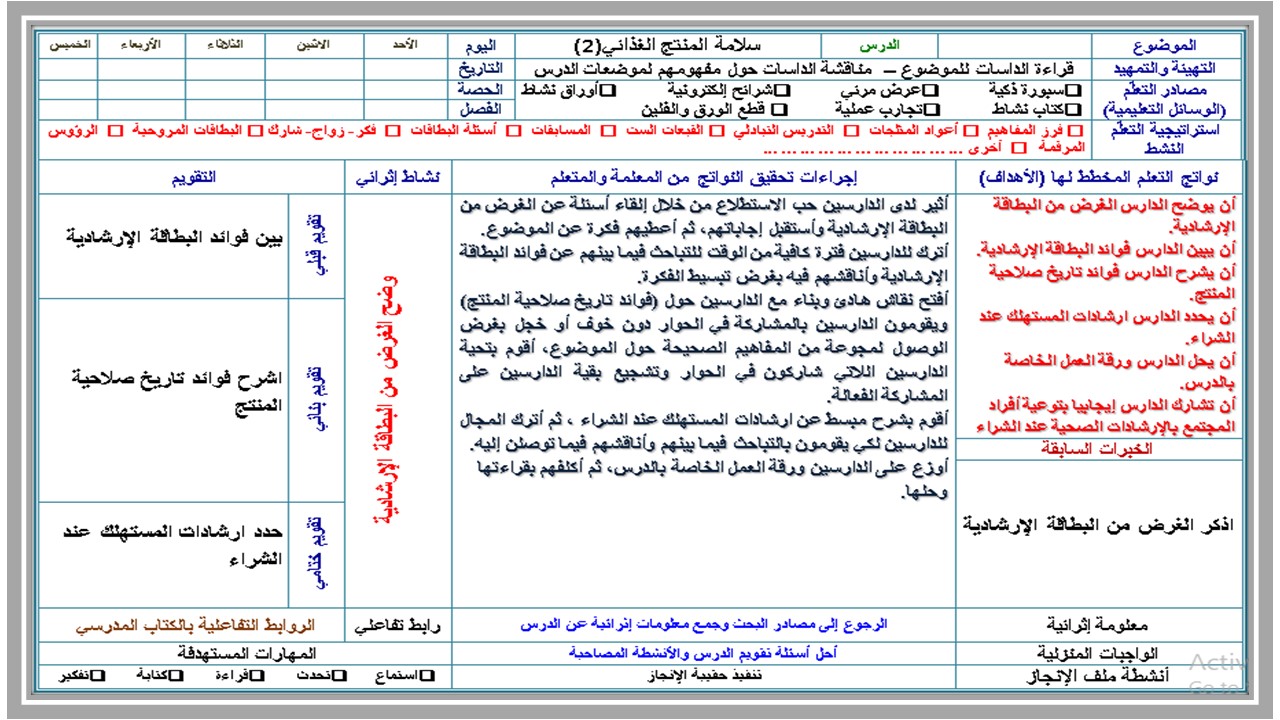 الموضوع
الدرس
سلامة المنتج الغذائي(2)
اليوم
الأحد
الاثنين
الثلاثاء
الأربعاء
الخميس
التهيئة والتمهيد
قراءة الداسات للموضوع – مناقشة الداسات حول مفهومهم لموضعات الدرس
التاريخ
مصادر التعلم
(الوسائل التعليمية)
سبورة ذكية
عرض مرئي
شرائح إلكترونية
أوراق نشاط
كتاب نشاط
تجارب عملية
قطع الورق والفلين
الحصة
الفصل
استراتيجية التعلم
النشط
فرز المفاهيم
أعواد المثلجات
التدريس التبادلي
القبعات الست
المسابقات
أسئلة البطاقات
فكر- زواج- شارك
البطاقات المروحية
الرؤوس
المرقمة
أخرى ... ... ... ... ... ... ... ... ... ... ...
نواتج التعلم المخطط لها (الأهداف)
إجراءات تحقيق النواتج من المعلمة والمتعلم
نشاط إثرائي
التقويم
أن يوضح الدارس الغرض من البطاقة
الإرشادية.
أن يبين الدارس فوائد البطاقة الإرشادية.
أن يشرح الدارس فوائد تاريخ صلاحية
المنتج.
أن يحدد الدارس ارشادات المستهلك عند
الشراء.
أن يحل الدارس ورقة العمل الخاصة
بالدرس.
أن تشارك الدارس إيجابيا بتوعية أفراد
المجتمع بالإرشادات الصحية عند الشراء
الخبرات السابقة
اذكر الغرض من البطاقة الإرشادية
أثير لدى الدارسين حب الاستطلاع من خلال إلقاء أسئلة عن الغرض من
البطاقة الإرشادية وأستقبل إجاباتهم، ثم أعطيهم فكرة عن الموضوع.
أترك للدارسين فترة كافية من الوقت للتباحث فيما بينهم عن فوائد البطاقة
الإرشادية وأناقشهم فيه بغرض تبسيط الفكرة.
أفتح نقاش هادئ وبناء مع الدارسين حول (فوائد تاريخ صلاحية المنتج)
ويقومون الدارسين بالمشاركة في الحوار دون خوف أو خجل بغرض
الوصول لمجوعة من المفاهيم الصحيحة حول الموضوع، أقوم بتحية
الدارسين اللاتي شاركون في الحوار وتشجيع بقية الدارسين على
المشاركة الفعالة.
أقوم بشرح مبسط عن ارشادات المستهلك عند الشراء ، ثم أترك المجال
للدارسين لكي يقومون بالتباحث فيما بينهم وأناقشهم فيما توصلن إليه.
أوزع على الدارسين ورقة العمل الخاصة بالدرس، ثم أكلفهم بقراءتها
وحلها.
وضح الغرض من البطاقة الإرشادية
تقويم قبلي
بين فوائد البطاقة الإرشادية
تقويم بنائي
اشرح فوائد تاريخ صلاحية
المنتج
تقويم ختامي
حدد ارشادات المستهلك عند
الشراء
معلومة إثرائية
الرجوع إلى مصادر البحث وجمع معلومات إثرائية عن الدرس
رابط تفاعلي
الروابط التفاعلية بالكتاب المدرسي
الواجبات المنزلية
أحل أسئلة تقويم الدرس والأنشطة المصاحبة
المهارات المستهدفة
أنشطة ملف الإنجاز
تنفيذ حقيبة الإنجاز
استماع
تحدث
قراءة
كتابة
تفكير
Activ
Go to